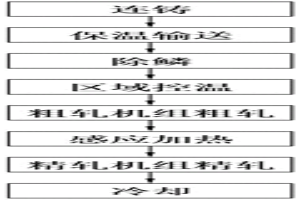 连铸
保温输送
除鳞
区域控温
粗轧机组粗轧
感应加热
精轧机组精轧
冷却